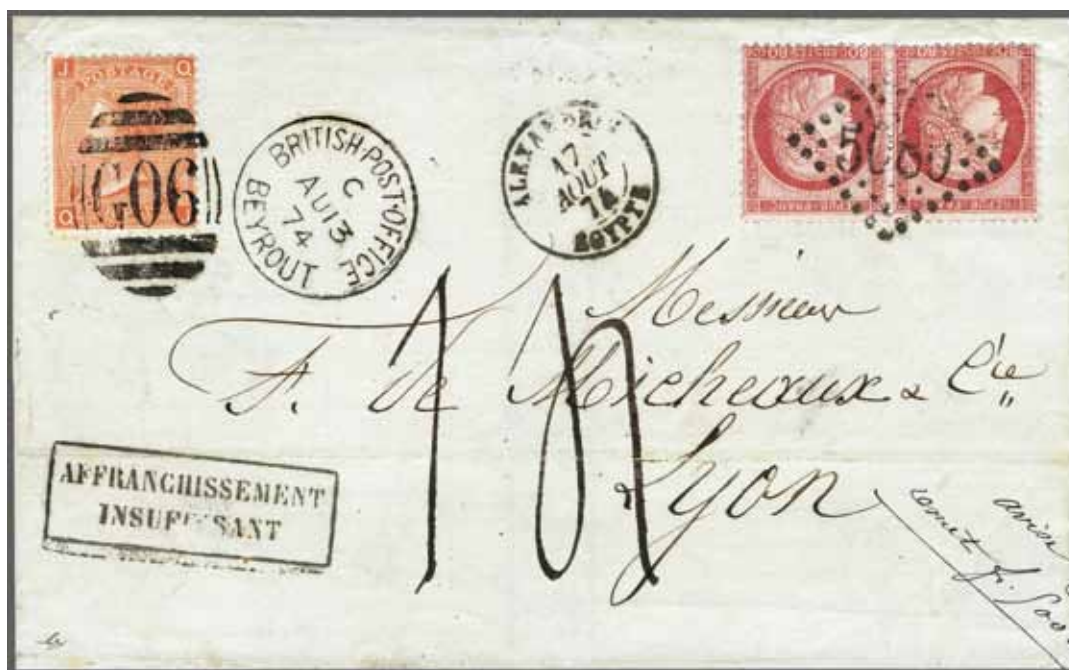 J Q
POSTAGE
Q
G06
BRITISH·POST·OFFICE
C
AU 13
74
BEYROUT
ALEXANDRIE
17
AOUT
74
EGYPTE
5080
Messieur
F. de Micheaux & Cie
Lyon
AFFRANCHISSEMENT
INSUFFISANT